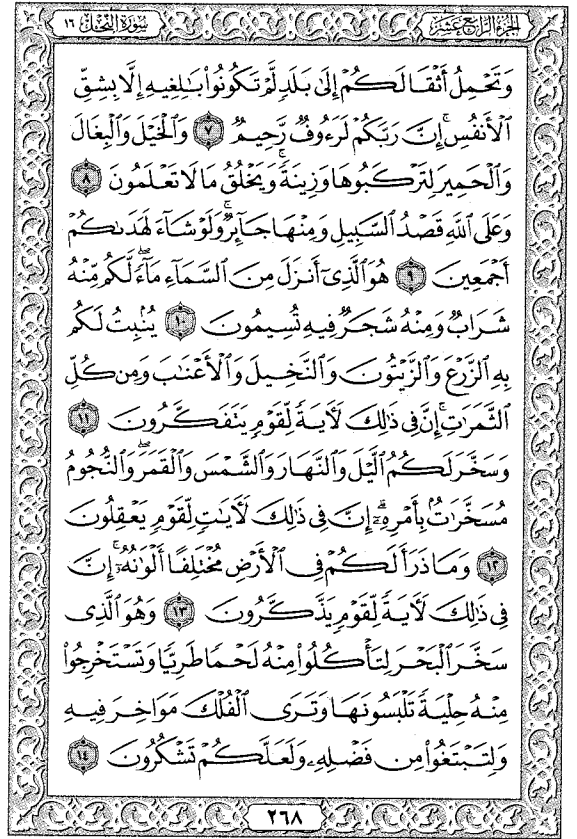 الجزء الرابع عشر سورة النحل ١٦
وَتَحْمِلُ أَثْقَالَكُمْ إِلَىٰ بَلَدٍ لَّمْ تَكُونُوا۟ بَـٰلِغِيهِ إِلَّا بِشِقِّ
ٱلْأَنفُسِ ۚ إِنَّ رَبَّكُمْ لَرَءُوفٌ رَّحِيمٌ ٧ وَٱلْخَيْلَ وَٱلْبِغَالَ
وَٱلْحَمِيرَ لِتَرْكَبُوهَا وَزِينَةً ۚ وَيَخْلُقُ مَا لَا تَعْلَمُونَ ٨
وَعَلَى ٱللَّهِ قَصْدُ ٱلسَّبِيلِ وَمِنْهَا جَآئِرٌ ۚ وَلَوْ شَآءَ لَهَدَىٰكُمْ
أَجْمَعِينَ ٩ هُوَ ٱلَّذِىٓ أَنزَلَ مِنَ ٱلسَّمَآءِ مَآءً ۖ لَّكُم مِّنْهُ
شَرَابٌ وَمِنْهُ شَجَرٌ فِيهِ تُسِيمُونَ ١٠ يُنۢبِتُ لَكُم
بِهِ ٱلزَّرْعَ وَٱلزَّيْتُونَ وَٱلنَّخِيلَ وَٱلْأَعْنَـٰبَ وَمِن كُلِّ
ٱلثَّمَرَٰتِ ۗ إِنَّ فِى ذَٰلِكَ لَـَٔايَةً لِّقَوْمٍ يَتَفَكَّرُونَ ١١
وَسَخَّرَ لَكُمُ ٱلَّيْلَ وَٱلنَّهَارَ وَٱلشَّمْسَ وَٱلْقَمَرَ ۖ وَٱلنُّجُومُ
مُسَخَّرَٰتٌۢ بِأَمْرِهِۦٓ ۗ إِنَّ فِى ذَٰلِكَ لَـَٔايَـٰتٍ لِّقَوْمٍ يَعْقِلُونَ
١٢ وَمَا ذَرَأَ لَكُمْ فِى ٱلْأَرْضِ مُخْتَلِفًا أَلْوَٰنُهُۥٓ ۗ إِنَّ
فِى ذَٰلِكَ لَـَٔايَةً لِّقَوْمٍ يَذَّكَّرُونَ ١٣ وَهُوَ ٱلَّذِى
سَخَّرَ ٱلْبَحْرَ لِتَأْكُلُوا۟ مِنْهُ لَحْمًا طَرِيًّا وَتَسْتَخْرِجُوا۟
مِنْهُ حِلْيَةً تَلْبَسُونَهَا وَتَرَى ٱلْفُلْكَ مَوَاخِرَ فِيهِ
وَلِتَبْتَغُوا۟ مِن فَضْلِهِۦ وَلَعَلَّكُمْ تَشْكُرُونَ ١٤
٢٦٨